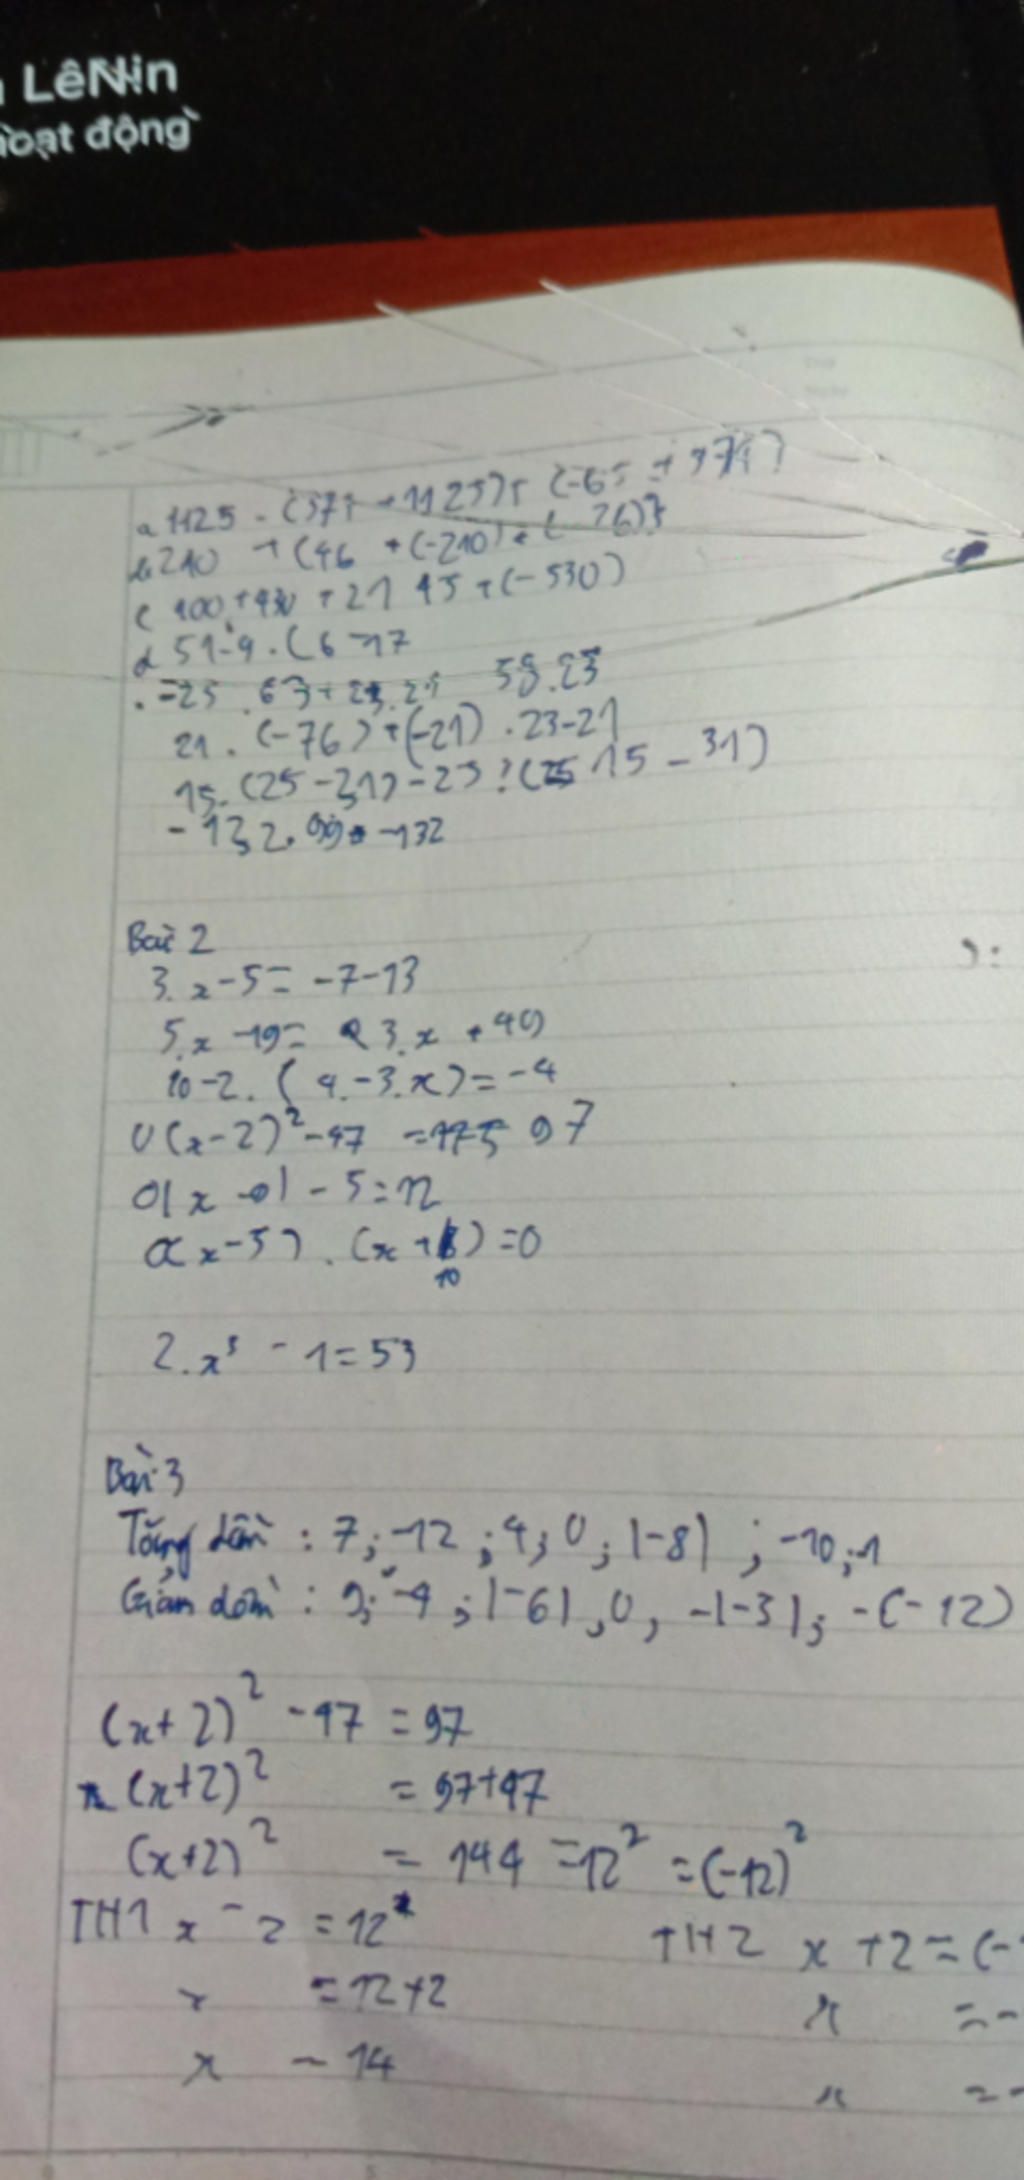 LêNin
hoạt động
a 1125 - (371 + 1125) + (-65 +
b 210 + (46 + (-210) + (-26)}
c 100 + 430 + 21 45 + (-530)
d 51-9.(6-17
= 25 . 63 + 58.23
21 . (-76) + (-21) . 23-21
15.(25-31)-25 (15-31)
-132.99 -132
Bài 2
3.x-5= -7-13
5.x -19= 3.x + 49
10-2.(4-3.x)=-4
(x-2)²-47 =97
|x | - 5=12
(x-5).(x+10)=0
2.x³ - 1=53
Bài 3
Tăng dần : 7; -12 ; 4; 0; |-8| ; -10; -1
Giảm dần : 9; -4 ; |-6|, 0, -|-3|; -(-12)
(x+2)² -47 = 97
(x+2)² = 97+47
(x+2)² = 144 =12² =(-12)²
TH1 x - 2 = 12 TH2 x +2=(-
x = 12+2 x =-
x = 14 x =-